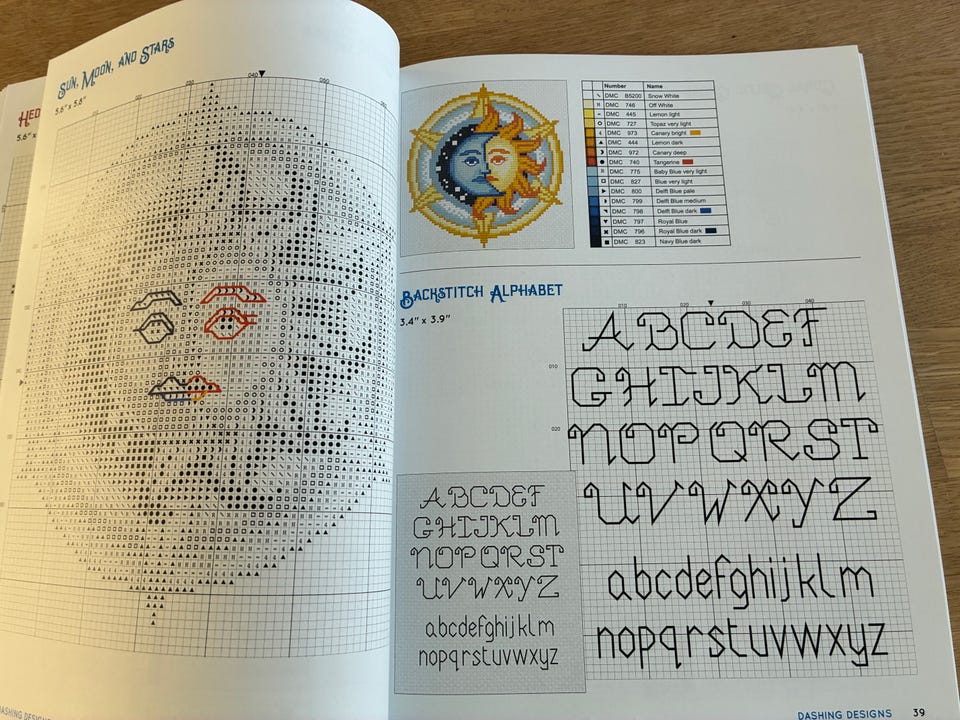 HED
5.6" x
SUN, MOON, AND STARS
5.6" x 5.6"
040
050
Number Name
DMC B5200 Snow White
DMC 746 Off White
DMC 445 Lemon light
DMC 727 Topaz very light
DMC 973 Canary bright
DMC 444 Lemon dark
DMC 972 Canary deep
DMC 740 Tangerine
DMC 775 Baby Blue very light
DMC 827 Blue very light
DMC 800 Delft Blue pale
DMC 799 Delft Blue medium
DMC 798 Delft Blue dark
DMC 797 Royal Blue
DMC 796 Royal Blue dark
DMC 823 Navy Blue dark
BACKSTITCH ALPHABET
3.4" x 3.9"
010 020 030 040
010
020
ABCDEF
GHIJKLM
NOPQRST
UVWXYZ
abcdefghijklm
nopqrstuvwxyz
ABCDEF
GHIJKLM
NOPQRST
UVWXYZ
abcdefghijklm
nopqrstuvwxyz
DASHING DESIGNS
DASHING DESIGNS 39